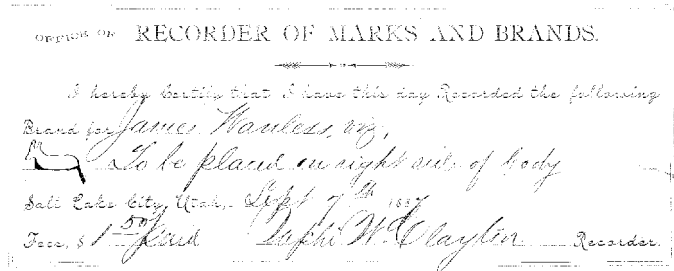 OFFICE OF RECORDER OF MARKS AND BRANDS.
I hereby Certify that I have this day Recorded the following
Brand for James Wanless, viz,
To be placed on right side of body
Salt Lake City, Utah, Sept 7th 1887
Fees, $1 50/ paid Daphi W. Clayton Recorder.